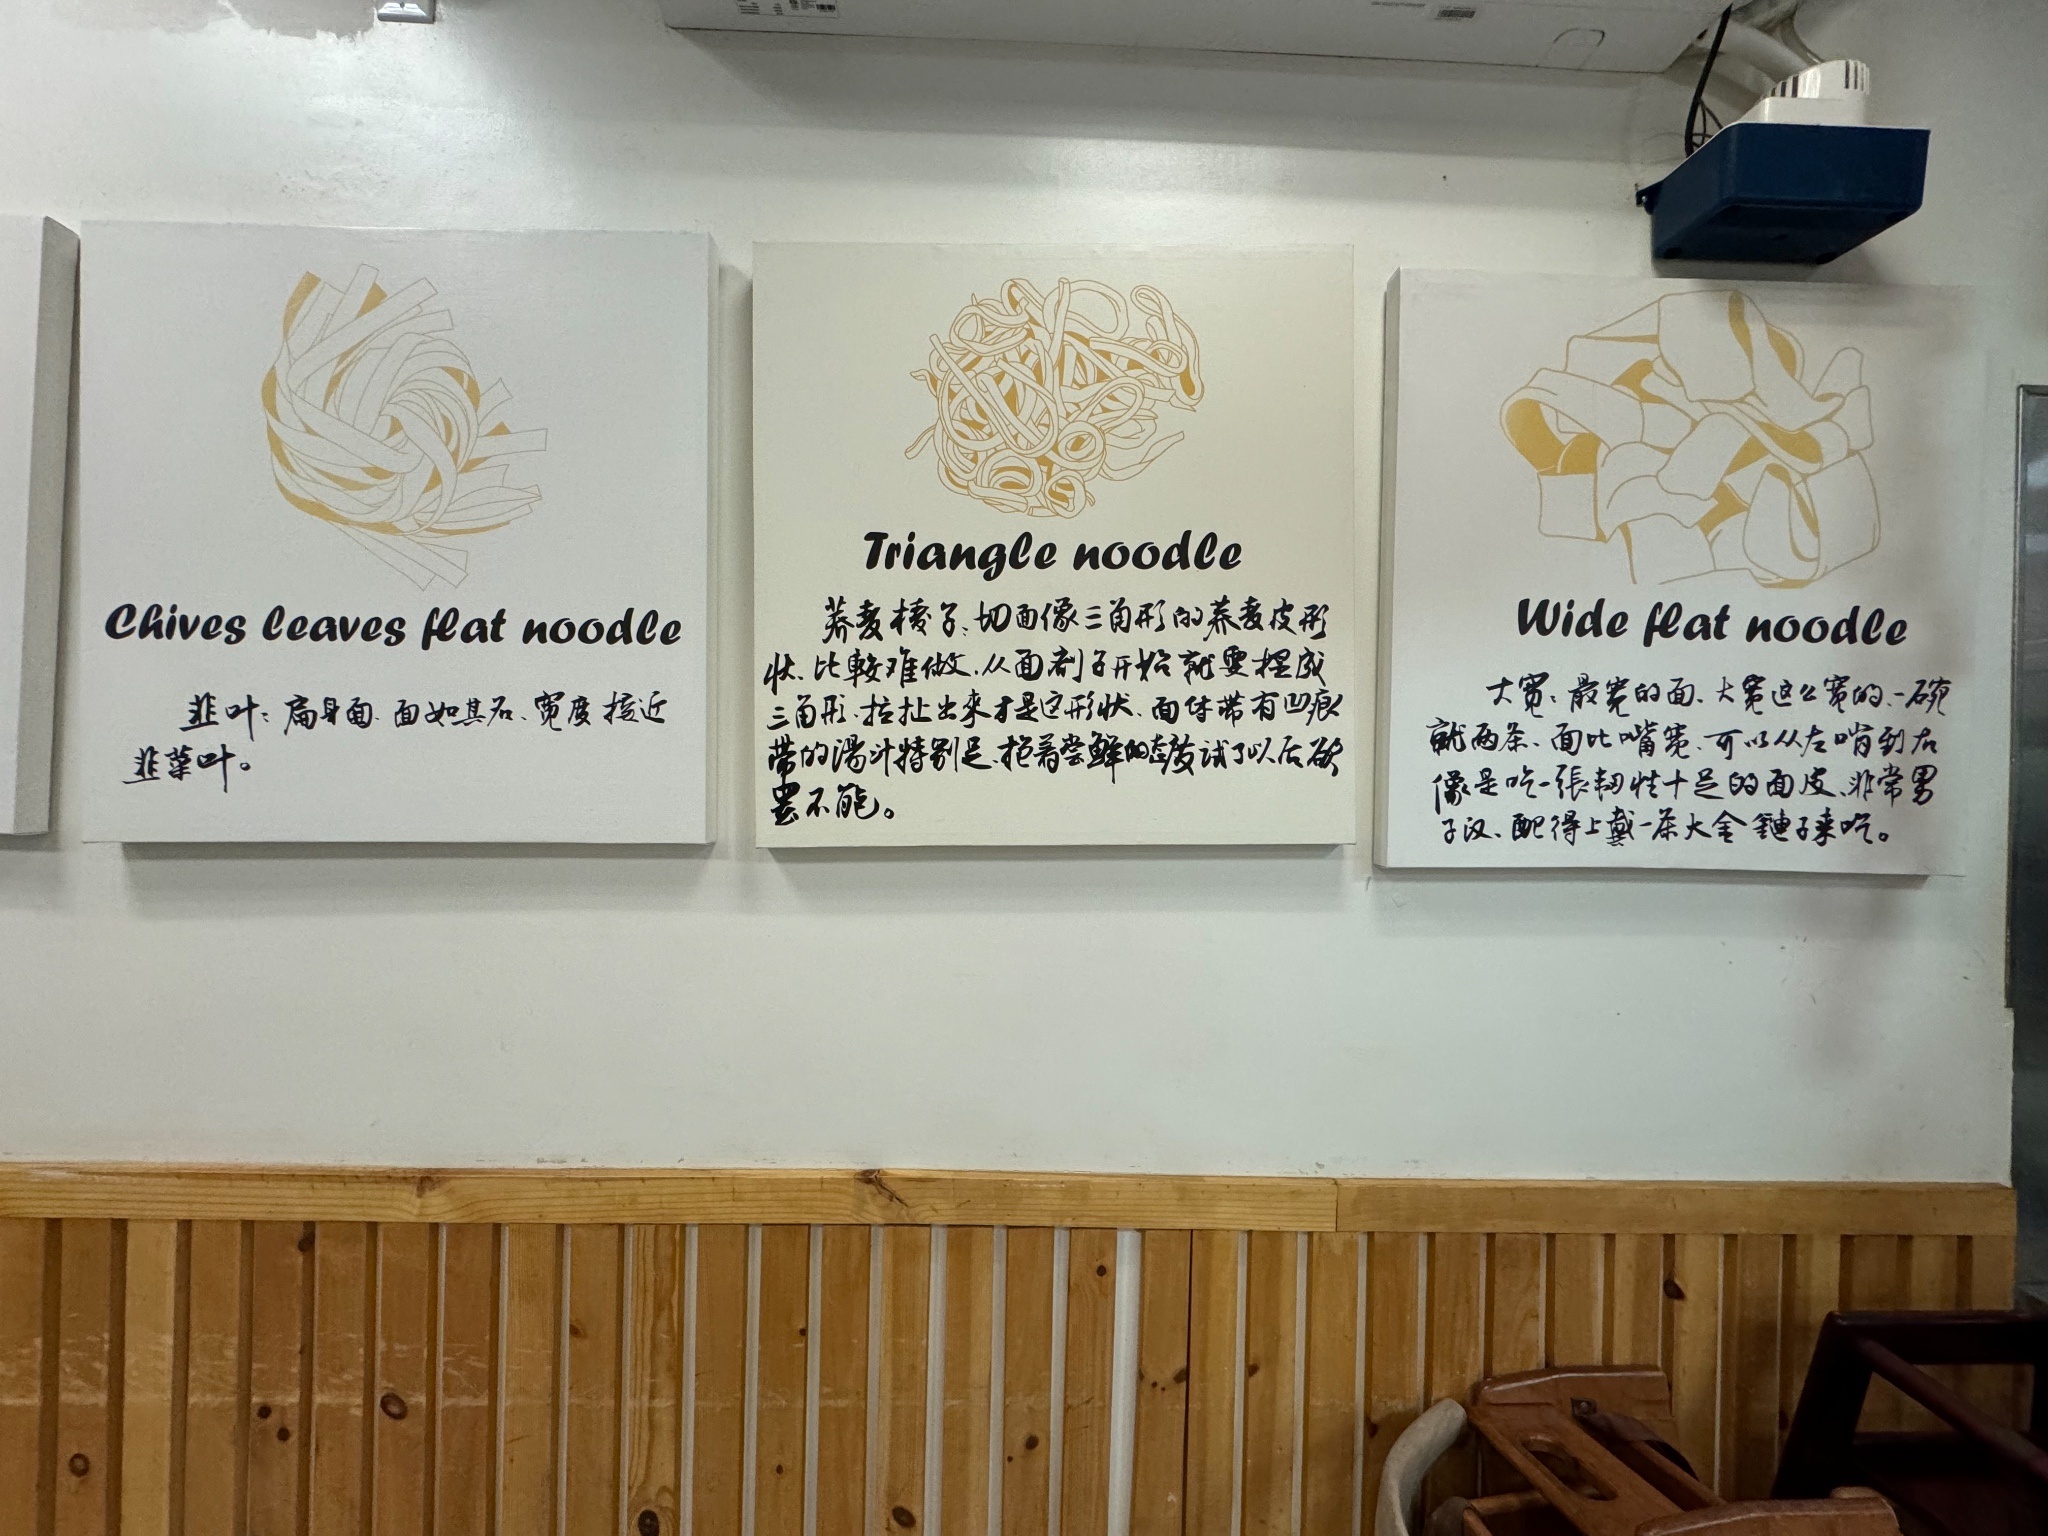 Chives leaves flat noodle
韭叶：扁身面、面如其名、宽度接近
韭菜叶。
Triangle noodle
荞麦棱子：切面像三角形的荞麦皮形
状、比較难做、从面剂子开始就要捏成
三角形、拉扯出来才是这形状、面体带有凹痕
带的湯汁特别足、抱着尝鲜的态度试了以后欲
罢不能。
Wide flat noodle
大宽：最宽的面、大宽这么宽的、一碗
就两条、面比嘴宽、可以从左啃到右
像是吃一張韧性十足的面皮、非常男
子汉、配得上戴一条大金鏈子来吃。